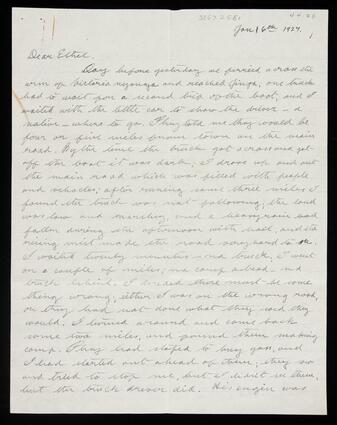 Jan 16th 1924.
Dear Ethel.
Day before yesterday we ferried across the
arm of Victoria nyanza and reached Jinja; one truck
had to wait for a second trip of the boat, and I
waited with the little car to show the driver - a
native - where to go. They told me they would be
four or five miles from town on the main
road. By the time the truck got across and got
off the boat it was dark; I drove up and out
the main road which was filled with people
and vehicles; after running some three miles I
found the truck was not following; the land
was low and marshy, and a heavy rain had
fallen during the afternoon with hail, and the
rising mist made the road very hard to see.
I waited twenty minutes - no truck. I went
on a couple of miles; no camp ahead - no
truck behind. I decided there must be some
thing wrong, either I was on the wrong road,
or they had not done what they said they
would. I turned around and came back
some two miles, and found them making
camp. They had stopped to buy gas, and
I had started out ahead of them; they saw
and tried to stop me, but I didn't see them,
but the truck driver did. His engine was